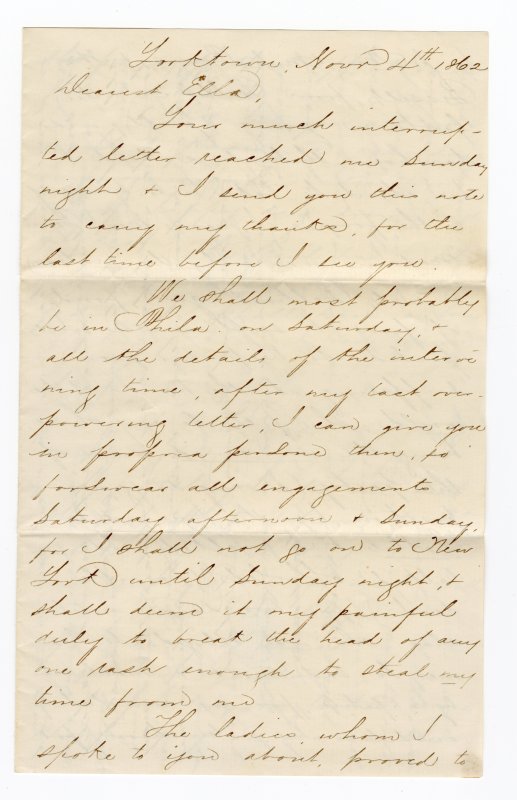 Yorktown, Novr. 4th 1862
Dearest Ella,
Your much interrup-
ted letter reached me Sunday
night & I send you this note
to carry my thanks, for the
last time before I see you.
We shall most probably
be in Phila. on Saturday, &
all the details of the interve
ning time, after my last over-
powering letter, I can give you
in propria persona then, so
forswear all engagements
Saturday afternoon & Sunday,
for I shall not go on to New
York until Sunday night, &
shall deem it my painful
duty to break the head of any
one rash enough to steal my
time from me
The ladies, whom I
spoke to you about, proved to